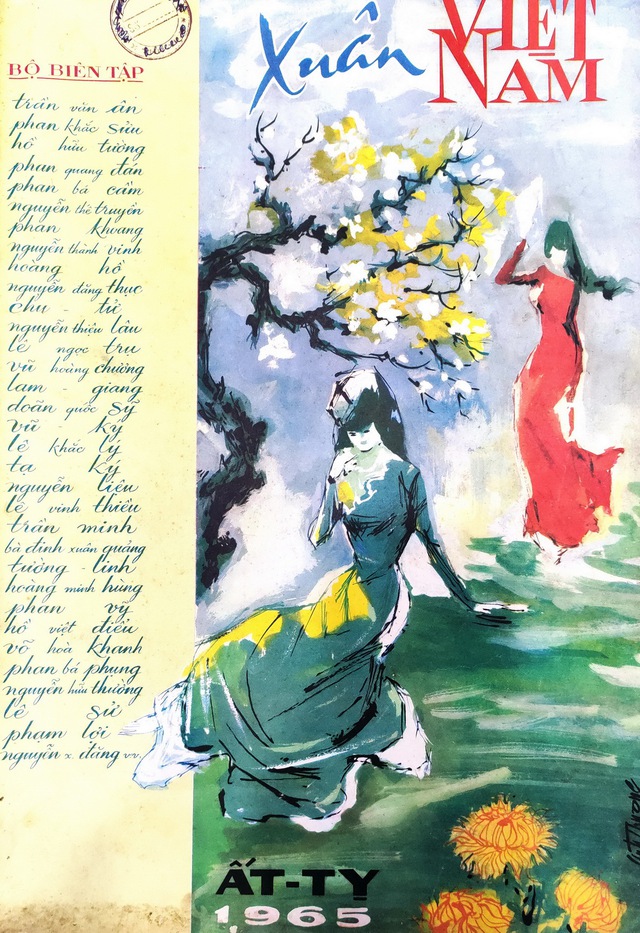 BỘ BIÊN TẬP
trần văn ân
phan khắc sửu
hồ hữu tường
phan quang đán
phan bá cầm
nguyễn thế truyền
phan khoang
nguyễn thành vinh
hoàng hồ
nguyễn đăng thục
chu - tử
nguyễn thiệu lâu
lê ngọc trụ
vũ hoàng chương
lam - giang
doãn quốc sỹ
vũ - ký
lê khắc lý
tạ ký
nguyễn liệu
lê vinh thiều
trần minh
bà đinh xuân quảng
tường - linh
hoàng minh hùng
phan vỹ
hồ việt điểu
võ hoà khanh
phan bá phụng
nguyễn hữu thường
lê sử
phạm lợi
nguyễn x. đăng v.v.
Xuân
VIỆT
NAM
ẤT-TỴ
1965